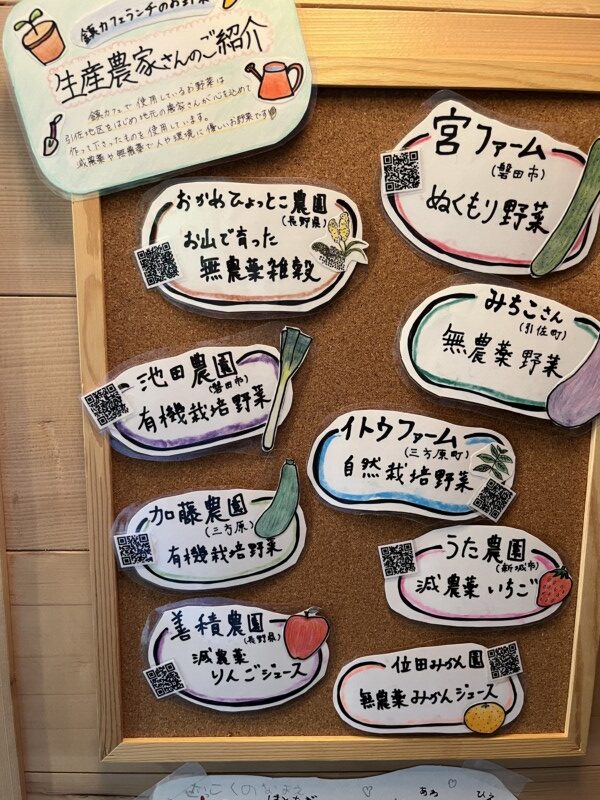 鎮カフェランチのお野菜
生産農家さんのご紹介
鎮カフェで使用しているお野菜は
引佐地区をはじめ地元の農家さんが心を込めて
作って下さったものを使用しています。
減農薬や無農薬で人や環境に優しいお野菜です
宮ファーム
(磐田市)
ぬくもり野菜
おかめひょっとこ農園
(長野県)
お山で育った
無農薬雑穀
みちこさん
(引佐町)
無農薬野菜
池田農園
(磐田市)
有機栽培野菜
イトウファーム
(三方原町)
自然栽培野菜
加藤農園
(三方原)
有機栽培野菜
うた農園
(新城市)
減農薬いちご
善積農園
(長野県)
減農薬
りんごジュース
位田みかん園
無農薬みかんジュース